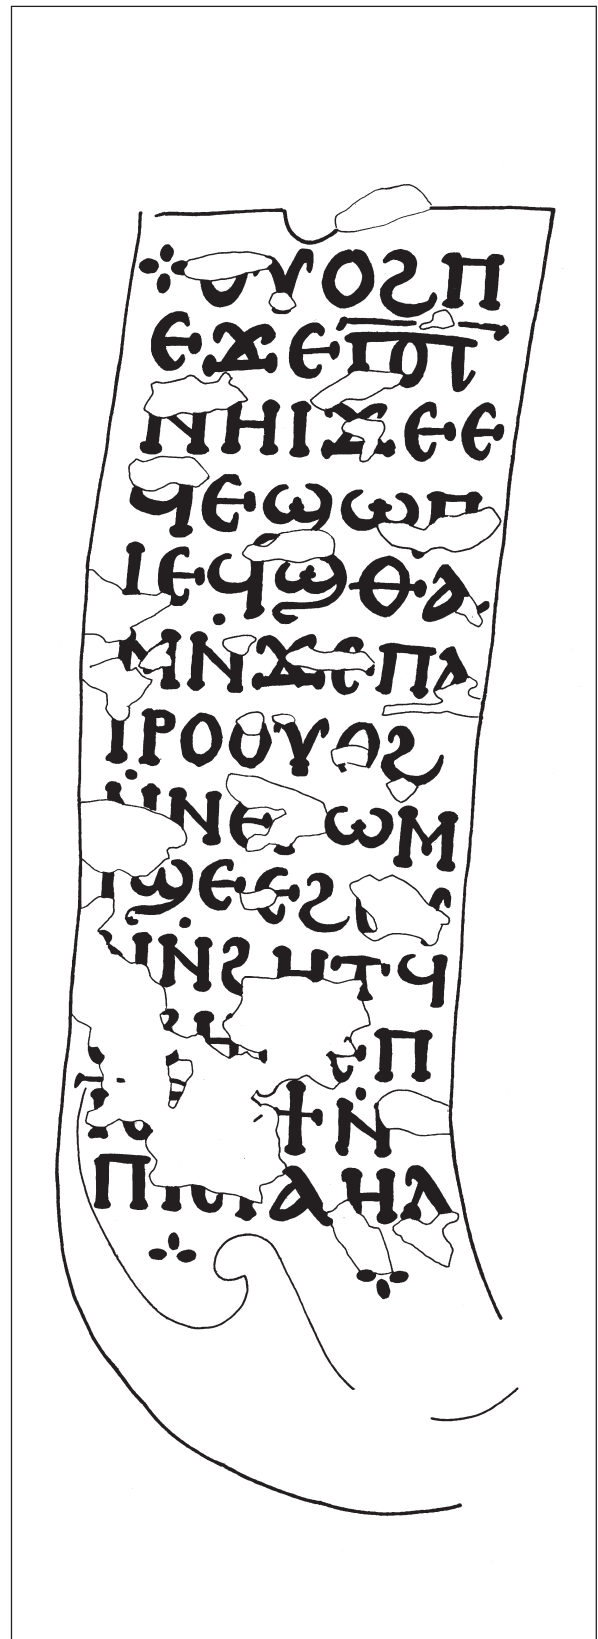 ⲟⲩⲟϩⲡ
ⲉϫⲉⲡ̅ⲟ̅ⲥ̅
ⲛⲏⲓϫⲉⲉ
ϥⲉϣⲱⲡ
ⲓⲉϥϣⲑⲁ
ⲙⲛ̇ϫⲉⲡⲁ
ⲓⲣⲟⲩⲟϩ
ⲛ̇ⲛⲉ ⲱⲙ
ⲓϣⲉⲉϩⲟⲩ
ⲛⲛ̇ϩⲏⲧϥ
ⲉⲡ
ϯⲛ̇
ⲡⲓⲥⲣⲁⲏⲗ